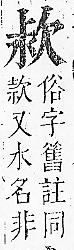 俗字舊註同
款又木名非